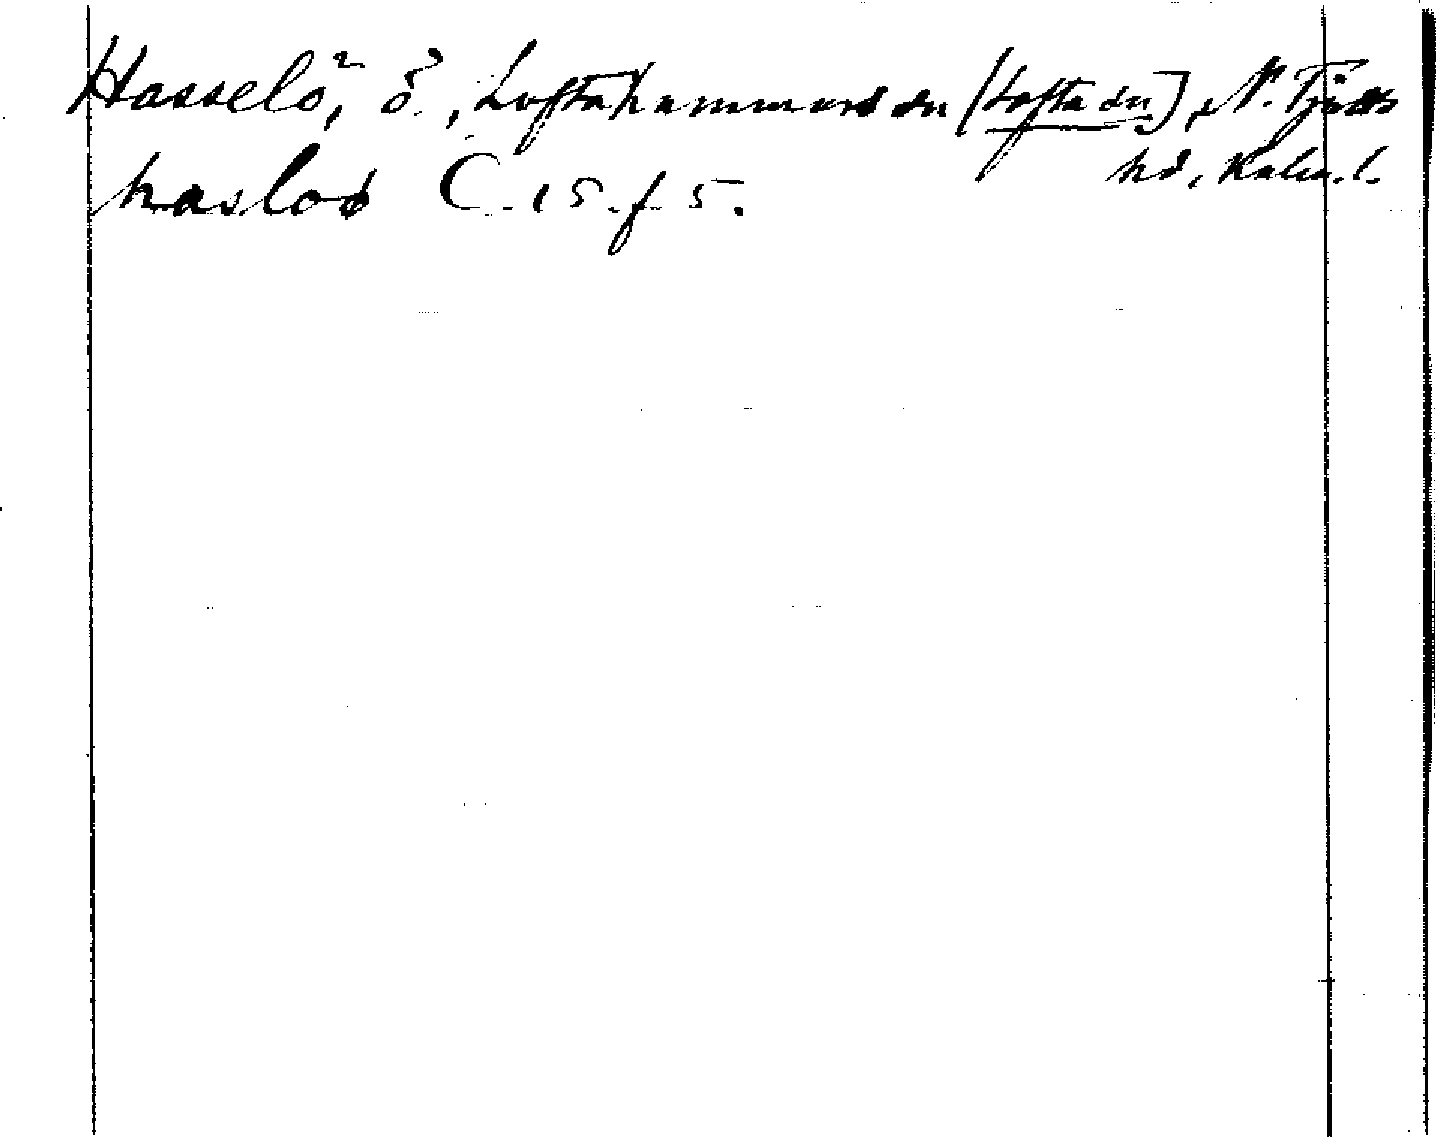 Hasselö, ö, Loftahammars sn (Lofta sn), N. Tjusts
hd, Kalm. l.
hasloo C. 15. f 5.